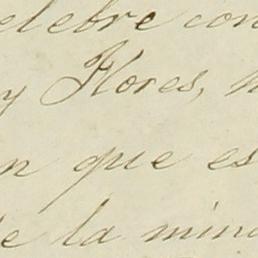 elebre con
y Flores, n
n que es
de la mina